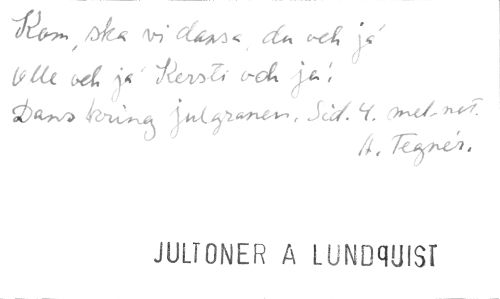 Kom, ska vi dansa, du och ja'
Olle och ja' Kersti och ja'!
Dans kring julgranen. Sid. 4. mel.-not.
A. Tegnér.
JULTONER A LUNDQUIST